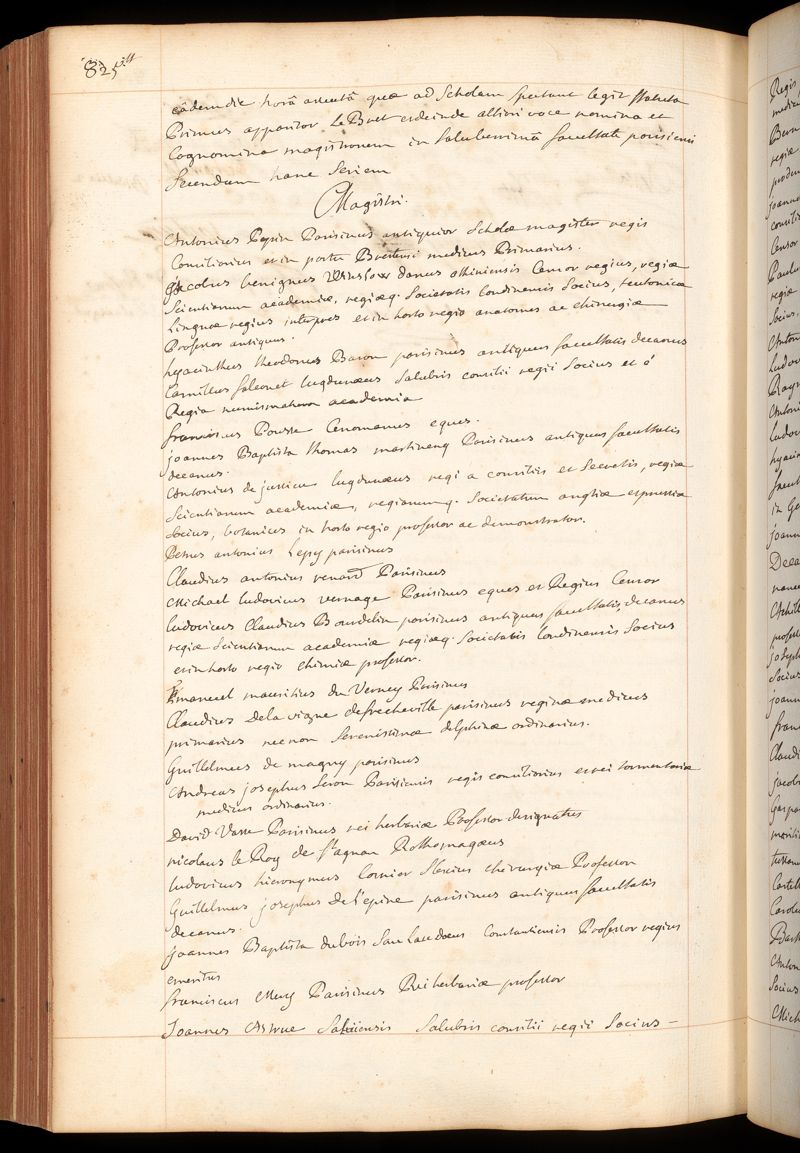 825
eâdem die horâ quae ad Scholam spectant legit Statuta
Primus apparitor Le Bret et deinde altiori voce nomina et
Cognomina magistrorum in Saluberrimâ facultate parisiensi
Secundum hanc Seriem
Magistri.
Antonius Pepin Parisinus antiquior Scholae magister regis
Consiliarius et in portu Brestensi medicus Primarius.
Jacobus benignus Winslow danus othiniensis Censor regius, regiae
Scientiarum academiae, regiaeq. Societatis Londinensis Socius, teutonicae
Linguae regius interpres et in horto regio anatomes ac chirurgiae
Professor antiquus.
hyacinthus theodorus Baron parisinus antiquus facultatis decanus
Camillus falconet lugdunaeus Salubris consilii regii Socius et è
Regia numismatum academia
franciscus Pousse Cenomanus eques.
joannes Baptista thomas martinenq Parisinus antiquus facultatis
decanus.
Antonius de jussieu lugdunaeus regi a consiliis et Secretis, regiae
Scientiarum academiae, regiarumq. Societatum angliae et prussiae
Socius, botanices in horto regio professor ac demonstrator.
Petrus antonius Lepy parisinus
Claudius antonius renard Parisinus
Michael ludovicus vernage Parisinus eques et Regius Censor
ludovicus Claudius Bourdelin parisinus antiquus facultatis decanus
regiae Scientiarum academiae regiaeq. Societatis londinensis Socius
et in horto regio chimiae professor.
Emanuel mauritius du Verney Parisinus
Claudius De la vigne de frecheville parisinus reginae medicus
primarius nec non Serenissimae delphinae ordinarius.
Guillelmus de magny parisinus
Andreas josephus Seron Parisiensis regis consiliarius et rei tormentariae
medicus ordinarius.
David Vasse Parisinus rei herbariae Professor designatus
nicolaus le Roy de St agnan Rothomagaeus
ludovicus hieronymus Cosnier chirurgiae Professor
Guillelmus josephus De l'epine parisinus antiquus facultatis
decanus.
joannes Baptista dubois San Laudoeus Constantiensis Professor regius
emeritus
franciscus Mery Parisinus Rei herbariae professor
Joannes Astruc Salubris consilii regii Socius –